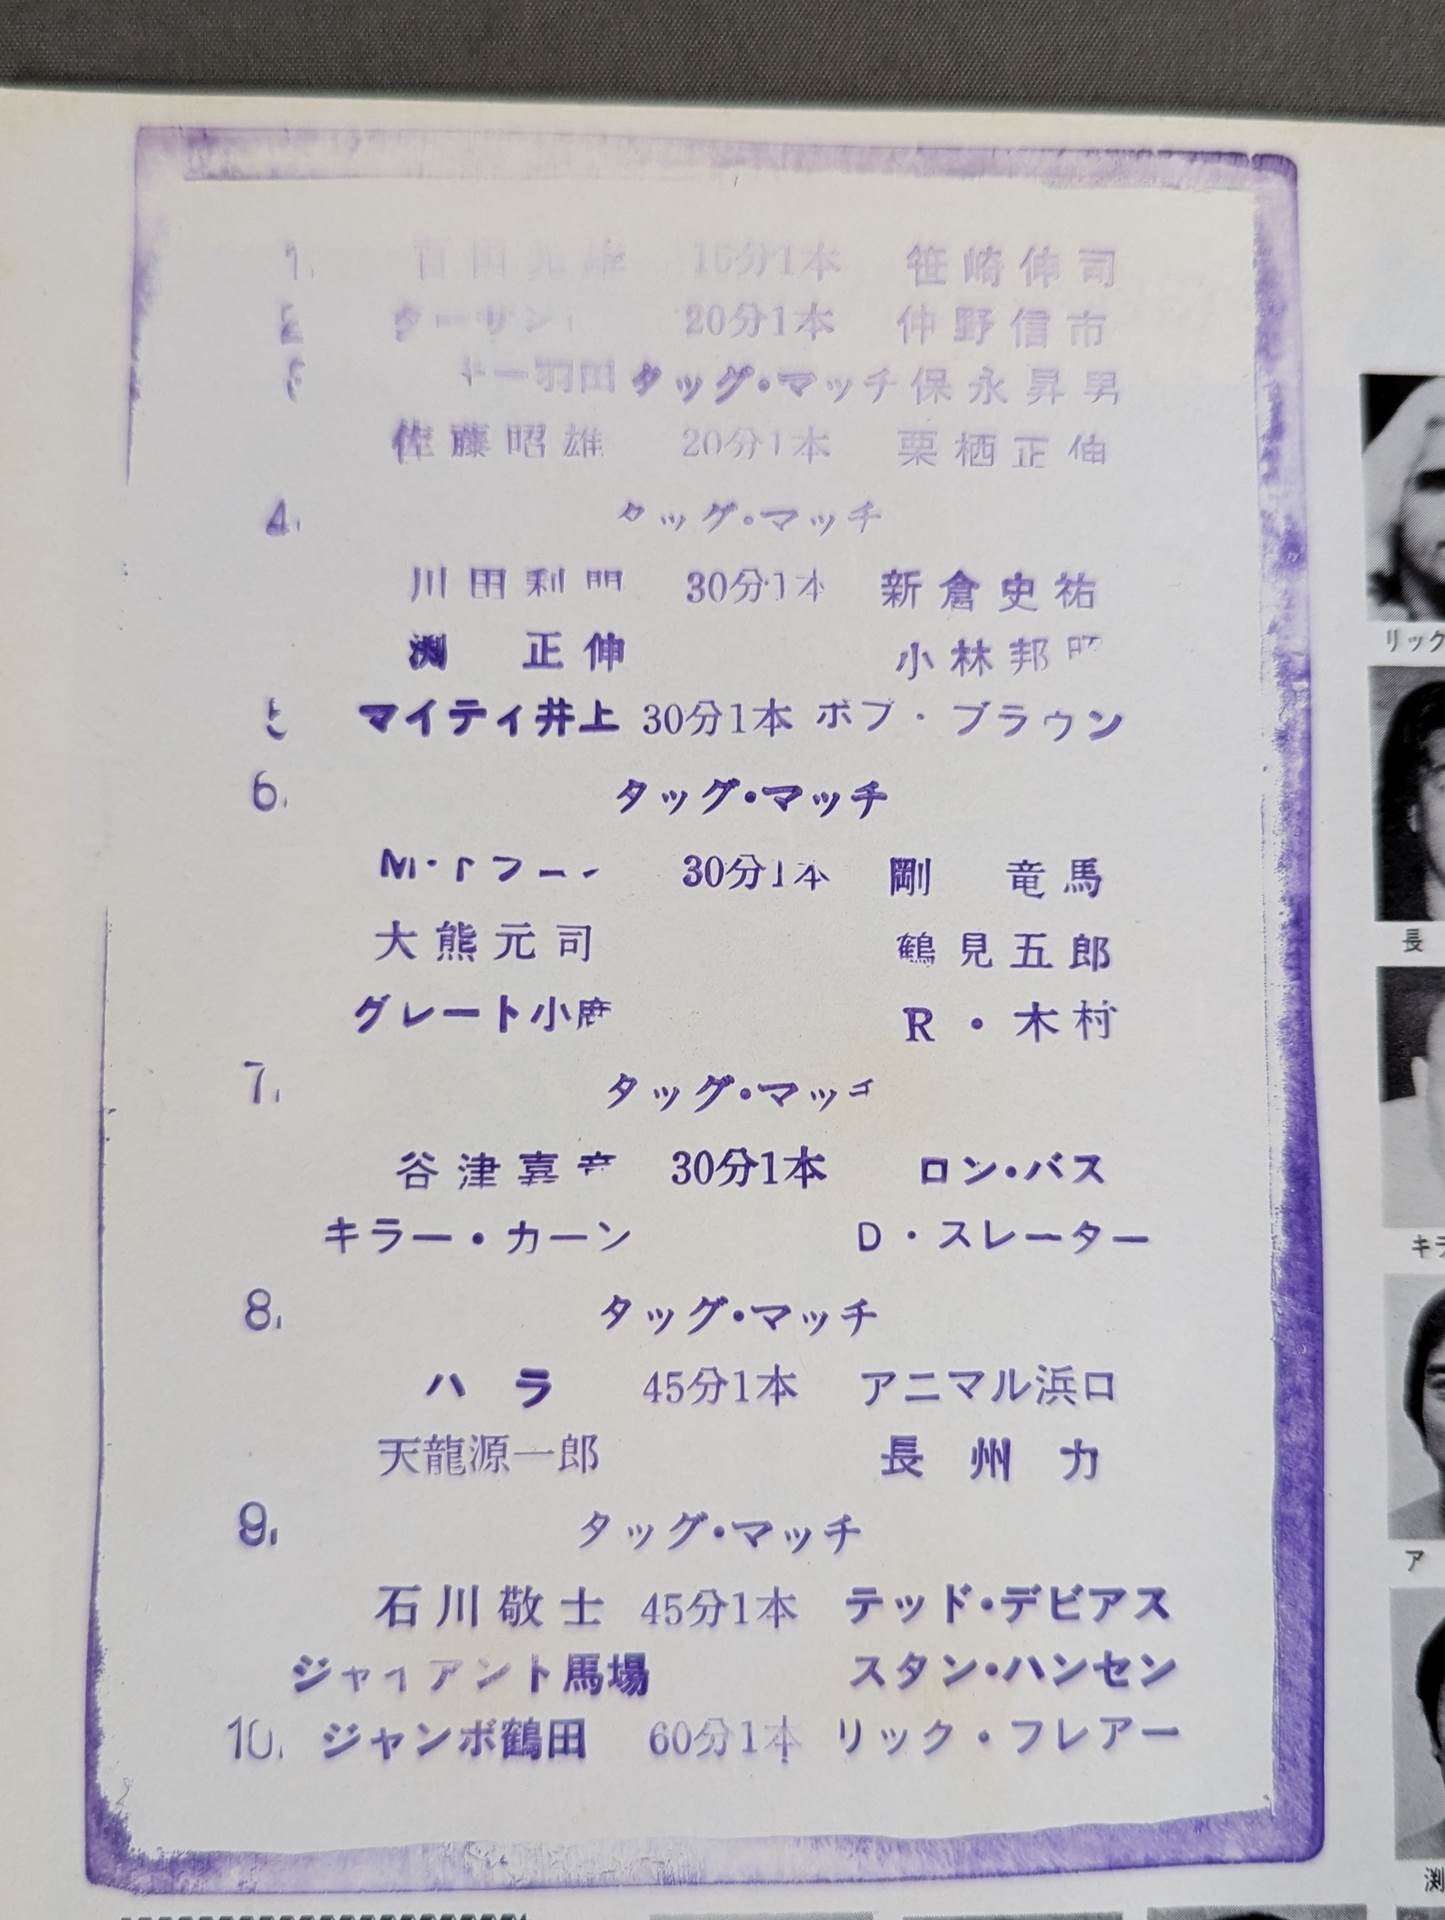 1. 15分1本 笹崎伸司
2. ターザン 20分1本 仲野信市
キー羽田 タッグ・マッチ 保永昇男
佐藤昭雄 20分1本 栗栖正伸
4. タッグ・マッチ
川田利明 30分1本 新倉史祐
渕 正伸 小林邦昭
5 マイティ井上 30分1本 ボブ・ブラウン
6. タッグ・マッチ
M・ 30分1本 剛 竜馬
大熊元司 鶴見五郎
グレート小鹿 R・木村
7. タッグ・マッチ
谷津嘉章 30分1本 ロン・バス
キラー・カーン D・スレーター
8. タッグ・マッチ
ハラ 45分1本 アニマル浜口
天龍源一郎 長州力
9. タッグ・マッチ
石川敬士 45分1本 テッド・デビアス
ジャイアント馬場 スタン・ハンセン
10. ジャンボ鶴田 60分1本 リック・フレアー
リック
長
キラ
ア
渕